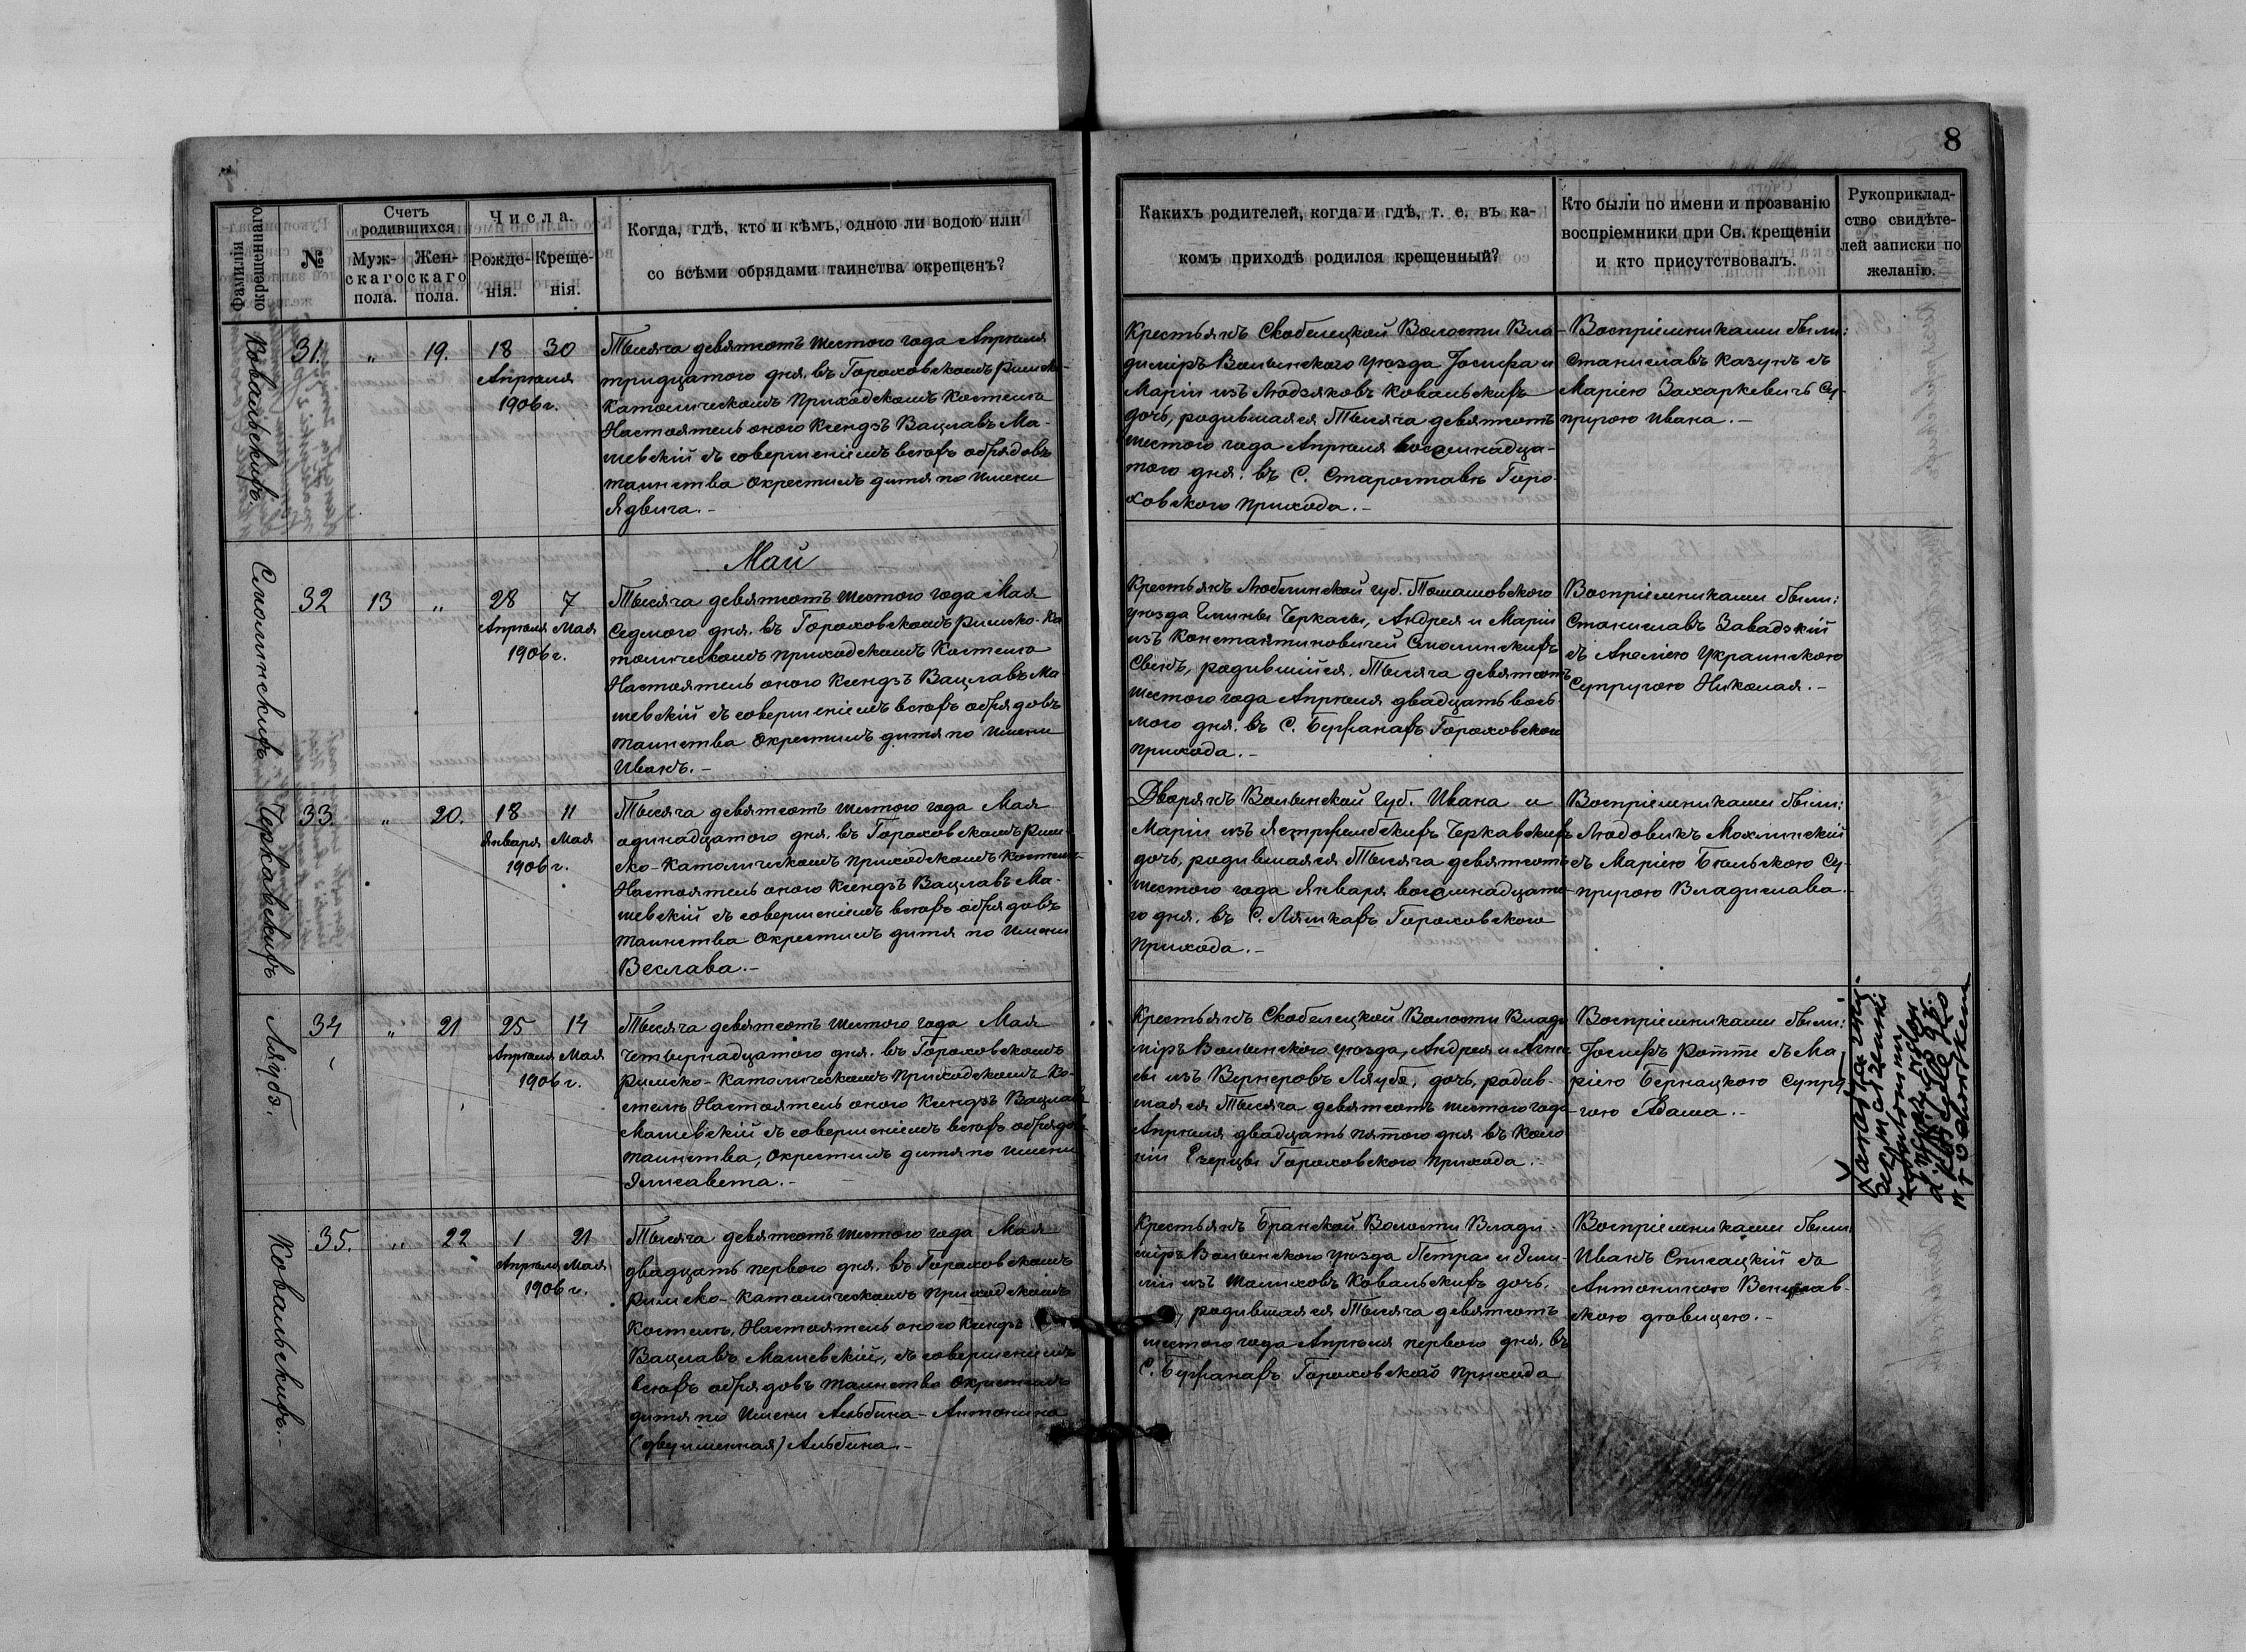 8
Фамилія окрещеннаго.
№
Счетъ родившихся
Муж-
скаго
пола.
Жен-
скаго
пола.
Числа.
Рожде-
нія.
Креще-
нія.
Когда, гдѣ, кто и кѣмъ, одною ли водою или
со всѣми обрядами таинства окрещенъ?
Какихъ родителей, когда и гдѣ, т. е. въ ка-
комъ приходѣ родился крещенный?
Кто были по имени и прозванію
воспріемники при Св. крещеніи
и кто присутствовалъ.
Рукоприклад-
ство свидѣте-
лей записки по
желанію.
Ковальскихъ.
31.
„
19.
18
30
Апрѣля
1906 г.
Тысяча девятсотъ шестого года Апрѣля
тридцатого дня. въ Гороховскомъ Римско-
Католическомъ Приходскомъ Костелѣ
Настоятель оного Ксендзъ Вацлавъ Ма-
шевскій съ совершеніемъ всѣхъ обрядовъ
таинства окрестилъ дитя по имени
Ядвига.-
Крестьянъ Скобелецкой Волости Вла-
диміръ Волынского уѣзда Іосифа и
Маріи изъ Людзяковъ Ковальскихъ
дочь, родившаяся Тысяча девятсотъ
шестого года Апрѣля восемнадца-
того дня. въ С. Староставѣ Горо-
ховского Прихода.-
Воспріемниками были:
Станиславъ Казунъ съ
Маріею Захаркевичъ Су-
пругою Ивана.-
Май
Смолинскихъ
32
13
„
28
7
Апрѣля Мая
1906 г.
Тысяча девятсотъ шестого года Мая
Седмого дня. въ Гороховскомъ Римско-Ка
толическомъ Приходскомъ Костелѣ
Настоятель оного Ксендзъ Вацлавъ Ма-
шевскій съ совершеніемъ всѣхъ обрядовъ
таинства Окрестилъ дитя по имени
Иванъ.-
Крестьянъ Люблинской губ. Томашовского
уѣзда Гмины Черкасы, Андрея и Маріи
изъ Константиновичей Смолинскихъ
Сынъ, родившійся. Тысяча девятсотъ
шестого года Апрѣля двадцать вось-
мого дня. въ С. Бужанахъ Гороховского
Прихода.-
Воспріемниками были:
Станиславъ Завадзкій
съ Анеліею Украинскою
Супругою Николая.-
Черкавскихъ
33.
„
20.
18
11
Января Мая
1906 г.
Тысяча девятсотъ шестого года Мая
одинадцатого дня. въ Гороховскомъ Рим-
ско-Католическомъ Приходскомъ Костелѣ
Настоятель оного Ксендзъ Вацлавъ Ма-
шевскій съ совершеніемъ всѣхъ обрядовъ
таинства Окрестилъ дитя по имени
Веслава.-
Дворянъ Волынской губ. Ивана и
Маріи изъ Ястржембскихъ Черкавскихъ
дочь, родившаяся Тысяча девятсотъ
шестого года Января восемнадцато-
го дня. въ С. Лямкахъ Гороховского
Прихода.-
Воспріемниками были:
Людовикъ Мохлинскій
съ Маріею Бѣльскою Су-
пругою Владислава.
Ляубъ.
34
„
21
25
14
Апрѣля Мая
1906 г.
Тысяча девятсотъ шестого года Мая
Четырнадцатого дня. въ Гороховскомъ
Римско-Католическомъ Приходскомъ Ко-
стелѣ Настоятель оного Ксендзъ Вацлавъ
Машевскій съ совершеніемъ всѣхъ обрядовъ
таинства, Окрестилъ дитя по имени
Элисавета.-
Крестьянъ Скобелецкой Волости Влади
міръ Волынского уѣзда, Андрея и Агне
сы изъ Вернеровъ Ляубъ, дочь, родив-
шаяся Тысяча девятсотъ шестого года
Апрѣля двадцать пятого дня въ Коло
ніи Езерцы Гороховского прихода.-
Воспріемниками были:
Іосифъ Ротте съ Ма
ріею Бернацкою Супру
гою Адама.-
Ковальскихъ.-
35.
„
22
1
21
Апрѣля Мая
1906 г.
Тысяча девятсотъ шестого года Мая
двадцать первого дня. въ Гороховскомъ
Римско-Католическомъ Приходскомъ
Костелѣ, Настоятель оного Ксендзъ
Вацлавъ Машевскій, съ совершеніемъ
всѣхъ обрядовъ таинства Окрестилъ
дитя по Имени Альбина-Антонина
(двуименная) Альбина.-
Крестьянъ Бранской Волости Влади-
міръ Волынского уѣзда Петра и Эми-
ліи изъ Шалиховъ Ковальскихъ дочь.
родившаяся Тысяча девятсотъ
шестого года Апрѣля первого дня. въ
С. Бужанахъ Гороховского Прихода
Воспріемниками были
Иванъ Списацкій съ
Антониною
скою дѣвицею.-